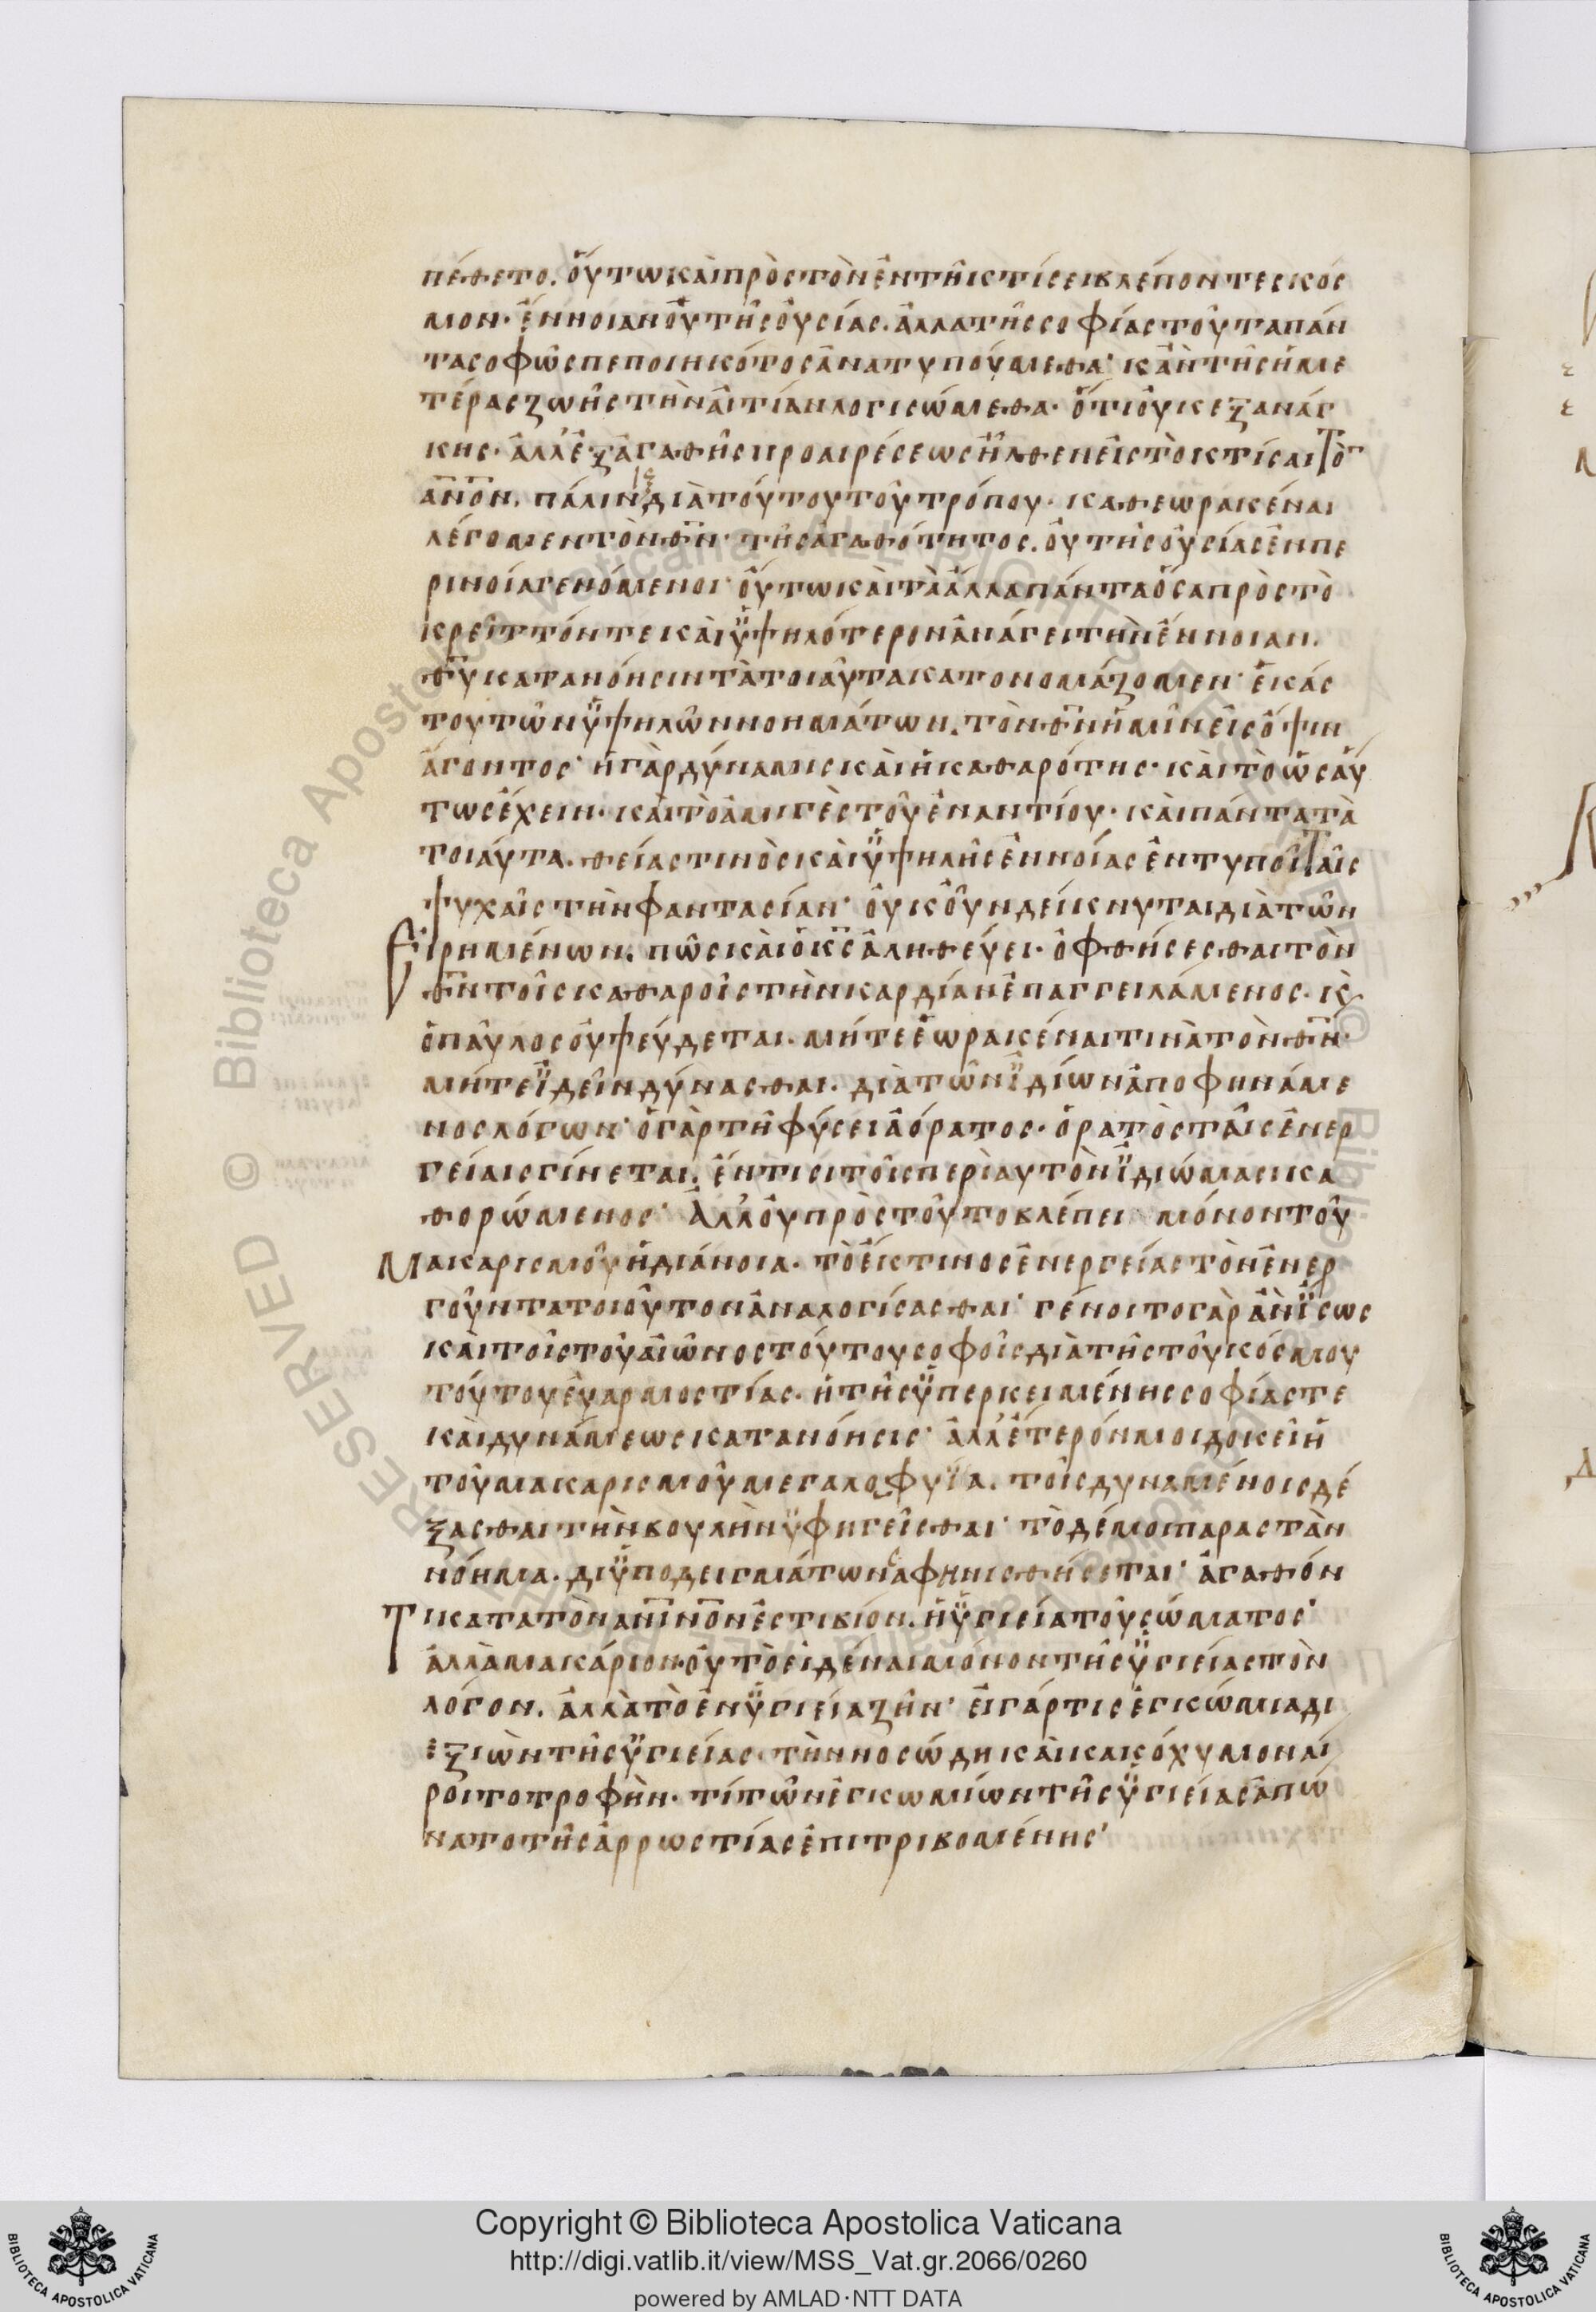 πέθετο. οὕτω καὶ πρὸς τὸν ἐν τῆι κτίσει βλέποντες κόσ
μον· ἔννοιαν οὐ τῆς οὐσίας. ἀλλα τῆς σοφίας τοῦ τα πάν
τα σοφῶς πεποιηκότος ἀνατυπούμεθα· κἂν τῆς ἡμε
τέρας ζωῆς τὴν αἰτίαν λογισώμεθα· ὅτι οὐκ εξ ανάγ
κης· ἀλλ' ἐξ ἀγαθῆς προαιρέσεως ἦλθεν εἰς τὸ κτίσαι τὸν
ανον. πάλιν διὰ τούτου τοῦ τρόπου· καθεωρακέναι
λέγομεν τὸν θν· τῆς ἀγαθότητος. οὐ τῆς οὐσίας ἐν πε
ρινοία γενόμενοι· οὕτω καὶ τὰ ἄλλα πάντα ὅσα πρὸς τὸ
κρεῖττόν τε καὶ ὑψηλότερον ἀνάγει τὴν ἔννοιαν.
θυ κατανόησιν τὰ τοιαῦτα κατονομάζομεν· ἑκάσ
του τῶν ὑψηλῶν νοημάτων. τὸν θν ἡμῖν εἰς ὄψιν
ἄγοντος· ἡ γὰρ δύναμις καὶ ἡ καθαρότης· καὶ τὸ ὡσαύ
τως ἔχειν· καὶ τὸ ἀμιγὲς τοῦ ἐναντίου· καὶ πάντα τὰ
τοιάυτα. θείας τινὸς καὶ ὑψηλῆς ἐννοίας ἐντυποῖ ταῖς
ψυχαῖς τὴν φαντασίαν· οὐκ οὖν δείκνυται διὰ τῶν
Ειρημένων. πῶς καὶ ὁ κς ἀληθεύει· ὀφθήσεσθαι τὸν
θν τοῖς καθαροῖς τὴν καρδίαν ἐπαγγειλάμενος· κ̀
ὁ παῦλος οὐ ψεύδεται. μήτε ἑωρακέναι τινὰ τὸν θν·
μήτε ϊδεῖν δύνασθαι. διὰ τῶν ϊδίων ἀποφηνάμε
νος λόγων· ὁ γὰρ τῆ φύσει ἀόρατος· ὁρατὸς ταῖς ἐνερ
γείαις γίνεται. ἔν τισι τοῖς περὶ αυτὸν ϊδιώμασι κα
θορώμενος· Ἀλλ' οὐ πρὸς τοῦτο βλέπει μόνον τοῦ
Μακαρισμοῦ ἡ διάνοια. τὸ ἔκ τινος ἐνεργείας τὸν ἐνερ
γοῦντα τοιοῦτον ἀναλογίσασθαι· γένοιτο γὰρ ἂν ἴσως
καὶ τοῖς τοῦ αἰῶνος τούτου σοφοῖς διὰ τῆς τοῦ κόσμου
τούτου ἐυαρμοστίας. ἡ τῆς ὑπερκειμένης σοφίας τε
καὶ δυνάμεως κατανόησις· ἀλλ' ἕτερόν μοι δοκεῖ ἡ
τοῦ μακαρισμοῦ μεγαλοφυΐα. τοῖς δυναμένοις δέ
ξασθαι τὴν βουλὴν ὑφηγεῖσθαι· τὸ δέ μοι παραστὰν
νόημα. δι ὑποδειγμάτων σαφηνισθήσεται· ἀγαθόν
Τι κατα τὸν ανινον ἐστι βίον. ἡ ὑγιεία τοῦ σώματος·
ἀλλὰ μακάριον οὐ τὸ εἰδέναι μόνον τῆς ὑγιείας τὸν
λόγον. ἀλλὰ τὸ ἐν ὑγιεία ζῆν· εἰ γάρ τις ἐγκώμια δι
εξιὼν τῆς ὑγιείας. τὴν νοσώδη καὶ κακόχυμον αἱ
ροῖτο τροφὴν· τί τῶν ἐγκωμίων τῆς ὑγιείας ἀπώ
νατο τῆς ἀρρωστίας ἐπιτριβομένης·
Copyright © Biblioteca Apostolica Vaticana
http://digi.vatlib.it/view/MSS_Vat.gr.2066/0260
powered by AMLAD·NTT DATA
BIBLIOTECA APOSTOLICA VATICANA
BIBLIOTECA APOSTOLICA VATICANA